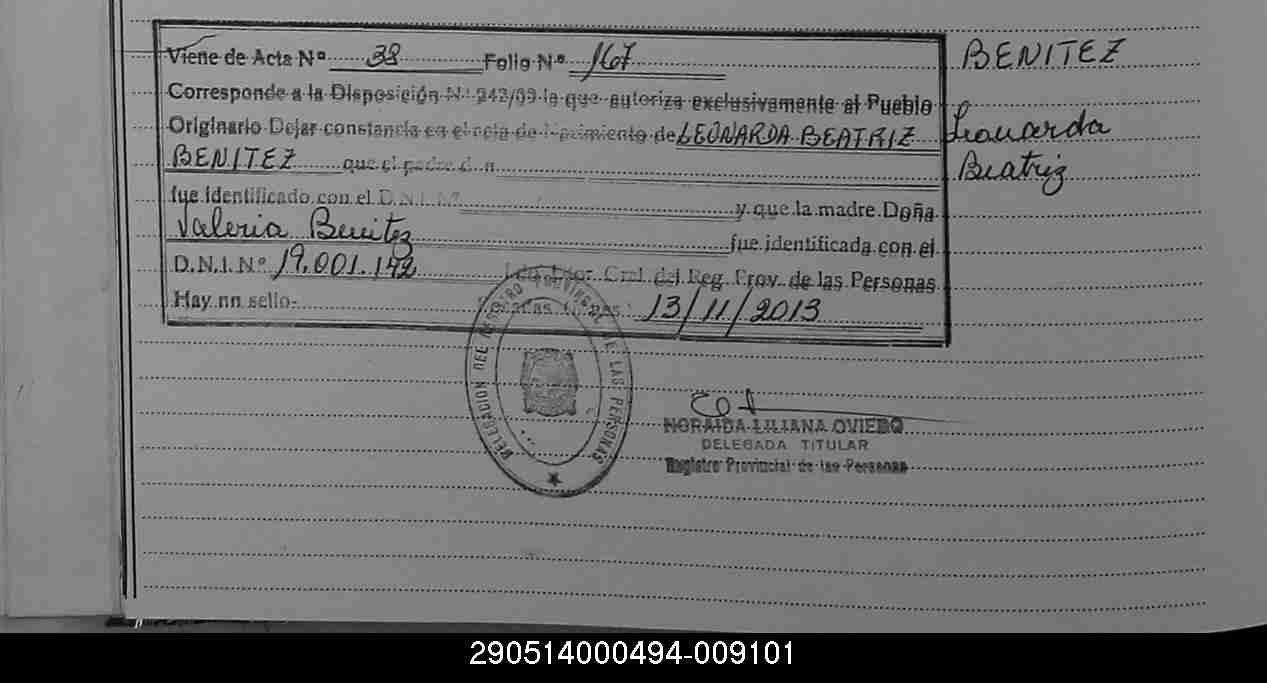 Viene de Acta Nº 38 Folio Nº 167
BENITEZ
Corresponde a la Disposición Nº 242/09 la que autoriza exclusivamente al Pueblo
Originario Dejar constancia en el acta de Nacimiento de LEONARDA BEATRIZ
Leonarda
BENITEZ que el padre don
Beatriz
fue identificado con el D.N.I. Nº y que la madre Doña
Valeria Benitez fue identificada con el
D.N.I. Nº 19.001.142 Gral. del Reg. Prov. de las Personas
Hay un sello- 13/11/2013
DELEGACION DEL REGISTRO PROVINCIAL DE LAS PERSONAS
NORAIDA LILIANA OVIEDO
DELEGADA TITULAR
Registro Provincial de las Personas
290514000494-009101